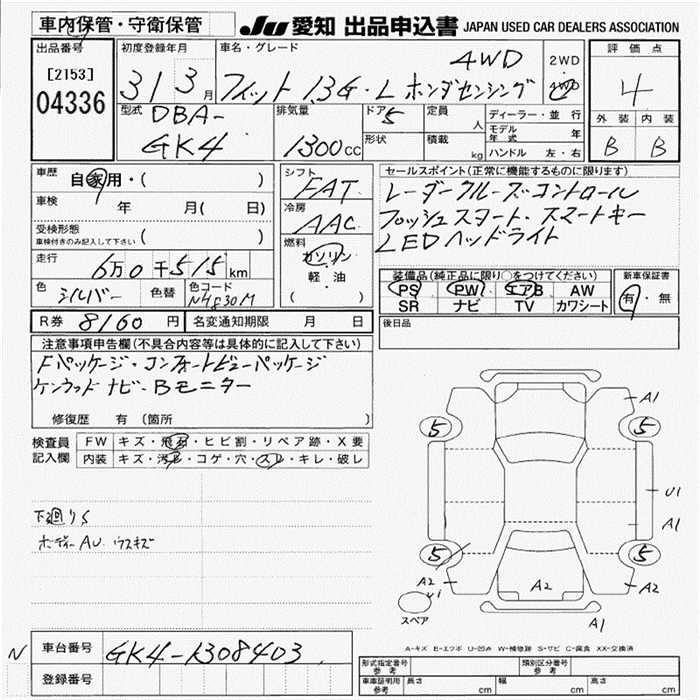 車内保管・守衛保管
JU 愛知 出品申込書 JAPAN USED CAR DEALERS ASSOCIATION
出品番号
[2153]
04336
初度登録年月
31 3月
車名・グレード
4WD
フィット 13G・L ホンダセンシング
2WD
4WD
評価点
4
外装 内装
B B
型式 DBA-
GK4
排気量
1300cc
ドア 5
形状
定員 人
積載 kg
ディーラー・並行
モデル年式 年
ハンドル 左・右
車歴 自家用・( )
車検 年 月( 日)
受検形態
車検付きのみ記入して下さい ( )
走行 6万0千515km
色 シルバー 色替 色コード NH830M
シフト FAT
冷房 AAC
燃料
ガソリン
軽・油
( )
セールスポイント(正常に機能するものに限ります)
レーダークルーズコントロール
プッシュスタート・スマートキー
LEDヘッドライト
装備品(純正品に限り○をつけてください)
PS PW エアB AW
SR ナビ TV カワシート
新車保証書
有・無
R券 8160円 名変通知期限 月 日
後日品
注意事項申告欄(不具合内容等は具体的に記入して下さい)
Fパッケージ・コンフォートビューパッケージ
ケンウッドナビ・Bモニター
修復歴 有 (箇所 )
検査員記入欄
FW キズ・飛石・ヒビ割・リペア跡・X要
内装 キズ・汚れ・コゲ・穴・スレ・キレ・破レ
下廻りS
ボディーAU ウスキズ
A1
5
5
U1
A1
5
5
A2
U1
A2
A2
A1
スペア
A-キズ E-エクボ U-凹み W-補修跡 S-サビ C-腐食 XX-交換済
N
車台番号 GK4-1308403
登録番号
形式指定番号 参考
類別区分番号 参考
車庫証明用 参考 長さ cm 幅 cm 高さ cm